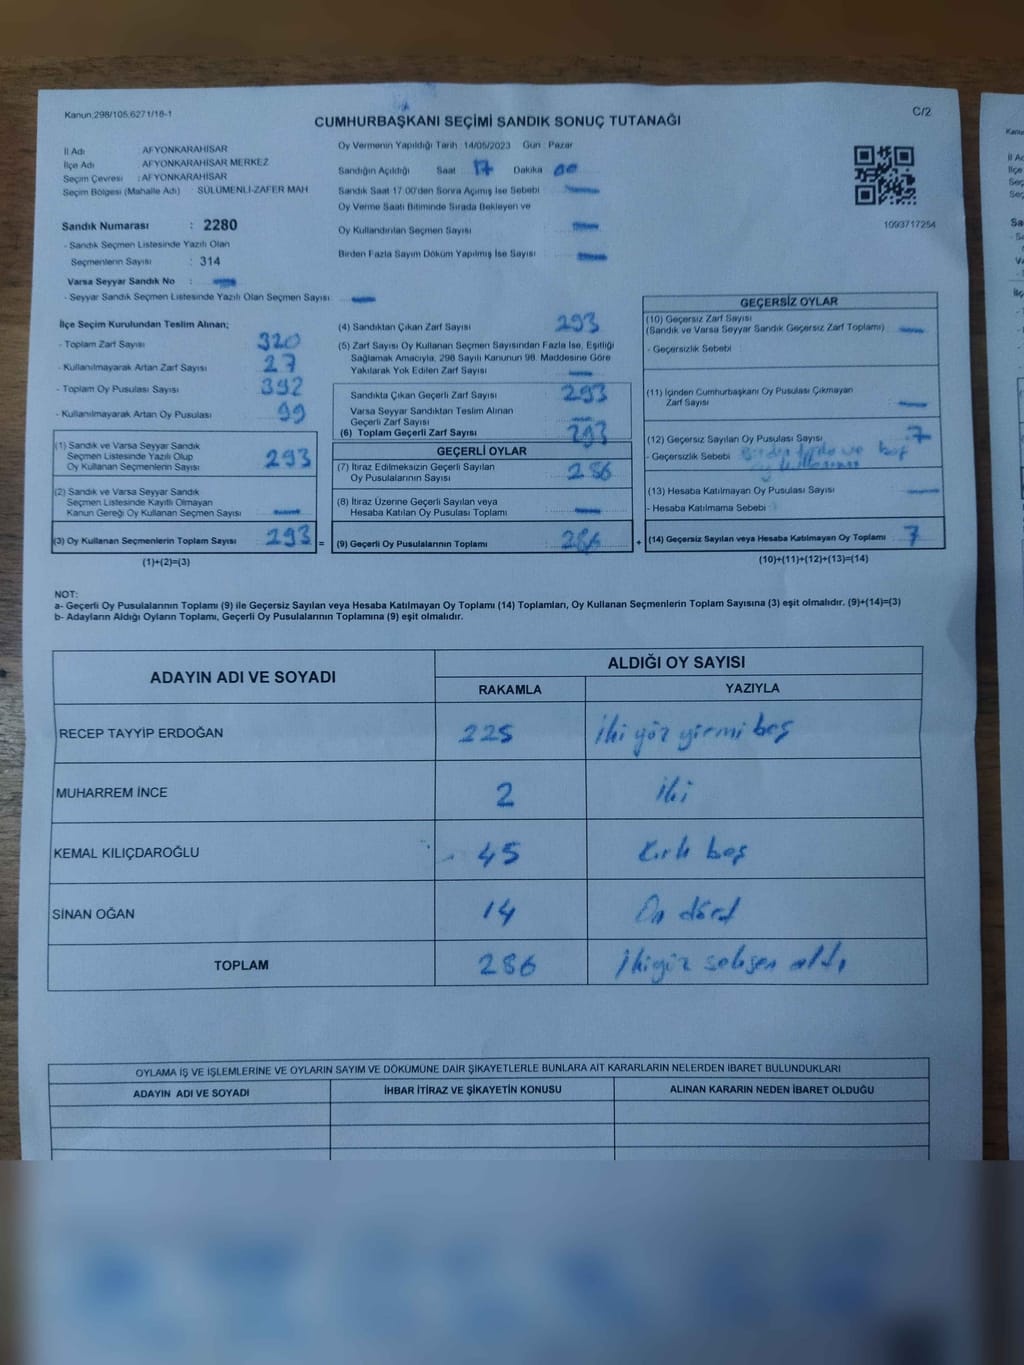 Kanun.298/105,6271/16-1
C/2
CUMHURBAŞKANI SEÇİMİ SANDIK SONUÇ TUTANAĞI
İl Adı AFYONKARAHİSAR
İlçe Adı AFYONKARAHİSAR MERKEZ
Seçim Çevresi : AFYONKARAHİSAR
Seçim Bölgesi (Mahalle Adı) SÜLÜMENLİ-ZAFER MAH
Sandık Numarası : 2280
- Sandık Seçmen Listesinde Yazılı Olan
Seçmenlerin Sayısı : 314
Varsa Seyyar Sandık No : —
- Seyyar Sandık Seçmen Listesinde Yazılı Olan Seçmen Sayısı: —
Oy Vermenin Yapıldığı Tarih 14/05/2023 Gün : Pazar
Sandığın Açıldığı Saat 17 Dakika 00
Sandık Saat 17.00'den Sonra Açmış İse Sebebi —
Oy Verme Saati Bitiminde Sırada Bekleyen ve
Oy Kullandırılan Seçmen Sayısı —
Birden Fazla Sayım Döküm Yapılmış İse Sayısı —
1093717254
İlçe Seçim Kurulundan Teslim Alınan;
- Toplam Zarf Sayısı 320
- Kullanılmayarak Artan Zarf Sayısı 27
- Toplam Oy Pusulası Sayısı 392
- Kullanılmayarak Artan Oy Pusulası 99
(1) Sandık ve Varsa Seyyar Sandık
Seçmen Listesinde Yazılı Olup
Oy Kullanan Seçmenlerin Sayısı 293
(2) Sandık ve Varsa Seyyar Sandık
Seçmen Listesinde Kayıtlı Olmayan
Kanun Gereği Oy Kullanan Seçmen Sayısı —
(3) Oy Kullanan Seçmenlerin Toplam Sayısı 293 =
(1)+(2)=(3)
(4) Sandıktan Çıkan Zarf Sayısı 293
(5) Zarf Sayısı Oy Kullanan Seçmen Sayısından Fazla İse, Eşitliği
Sağlamak Amacıyla, 298 Sayılı Kanunun 98. Maddesine Göre
Yakılarak Yok Edilen Zarf Sayısı —
Sandıkta Çıkan Geçerli Zarf Sayısı 293
Varsa Seyyar Sandıktan Teslim Alınan
Geçerli Zarf Sayısı —
(6) Toplam Geçerli Zarf Sayısı 293
GEÇERLİ OYLAR
(7) İtiraz Edilmeksizin Geçerli Sayılan
Oy Pusulalarının Sayısı 286
(8) İtiraz Üzerine Geçerli Sayılan veya
Hesaba Katılan Oy Pusulası Toplamı —
(9) Geçerli Oy Pusulalarının Toplamı 286 +
GEÇERSİZ OYLAR
(10) Geçersiz Zarf Sayısı
(Sandık ve Varsa Seyyar Sandık Geçersiz Zarf Toplamı) —
- Geçersizlik Sebebi :
(11) İçinden Cumhurbaşkanı Oy Pusulası Çıkmayan
Zarf Sayısı —
(12) Geçersiz Sayılan Oy Pusulası Sayısı 7
- Geçersizlik Sebebi ve boş
(13) Hesaba Katılmayan Oy Pusulası Sayısı —
- Hesaba Katılmama Sebebi
(14) Geçersiz Sayılan veya Hesaba Katılmayan Oy Toplamı 7
(10)+(11)+(12)+(13)=(14)
NOT:
a- Geçerli Oy Pusulalarının Toplamı (9) ile Geçersiz Sayılan veya Hesaba Katılmayan Oy Toplamı (14) Toplamları, Oy Kullanan Seçmenlerin Toplam Sayısına (3) eşit olmalıdır. (9)+(14)=(3)
b- Adayların Aldığı Oyların Toplamı, Geçerli Oy Pusulalarının Toplamına (9) eşit olmalıdır.
ADAYIN ADI VE SOYADI ALDIĞI OY SAYISI
RAKAMLA YAZIYLA
RECEP TAYYİP ERDOĞAN 225 İki yüz yirmi beş
MUHARREM İNCE 2 İki
KEMAL KILIÇDAROĞLU 45 Kırk beş
SİNAN OĞAN 14 On dört
TOPLAM 286 İkiyüz seksen altı
OYLAMA İŞ VE İŞLEMLERİNE VE OYLARIN SAYIM VE DÖKÜMÜNE DAİR ŞİKAYETLERLE BUNLARA AİT KARARLARIN NELERDEN İBARET BULUNDUKLARI
ADAYIN ADI VE SOYADI İHBAR İTİRAZ VE ŞİKAYETİN KONUSU ALINAN KARARIN NEDEN İBARET OLDUĞU